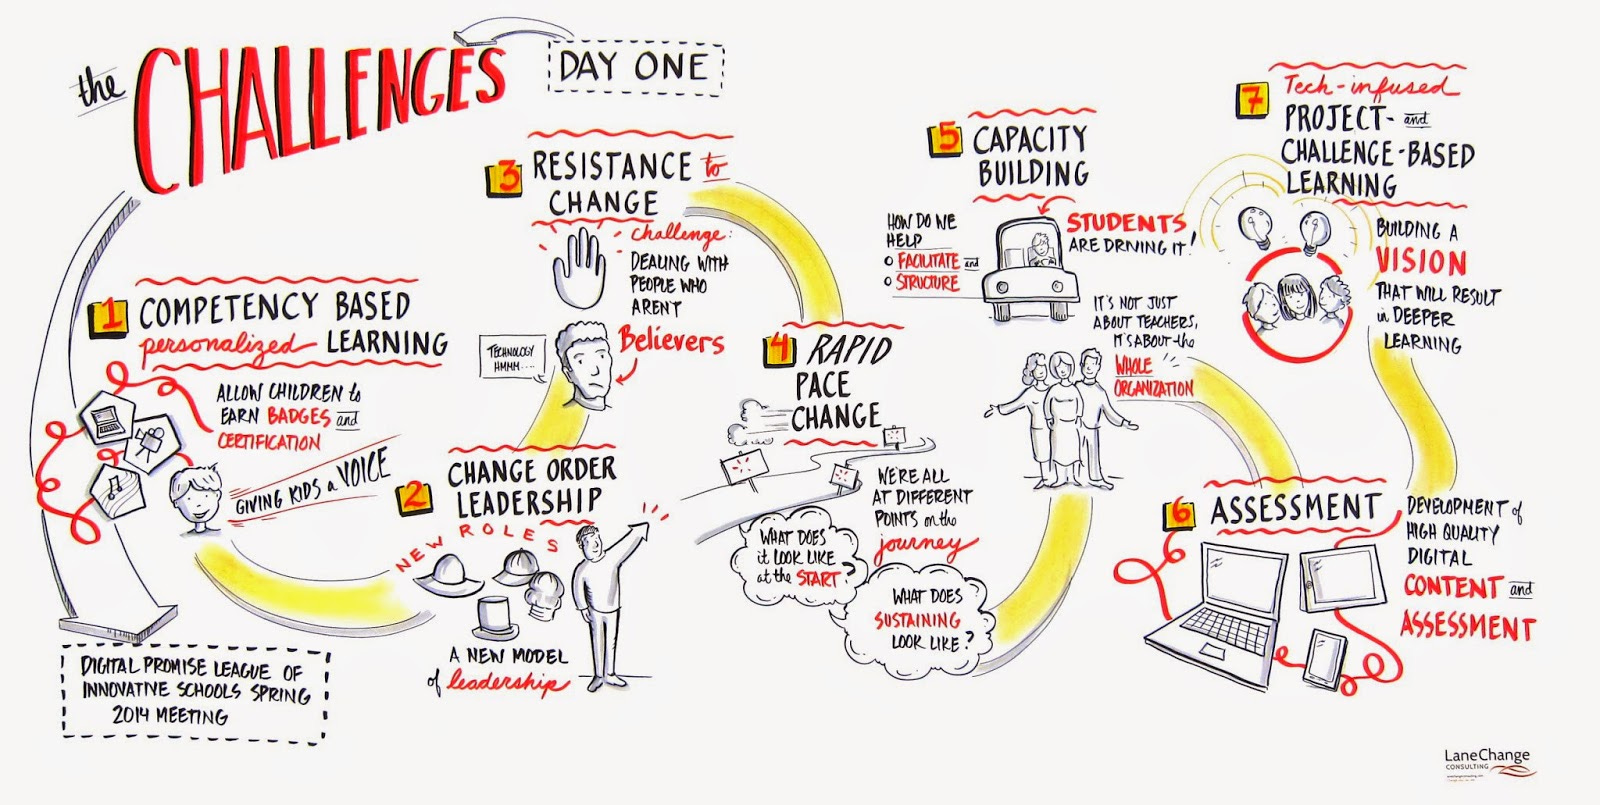 the CHALLENGES
DAY ONE
1 COMPETENCY BASED
personalized LEARNING
ALLOW CHILDREN to
EARN BADGES and
CERTIFICATION
GIVING KIDS a VOICE
DIGITAL PROMISE LEAGUE OF
INNOVATIVE SCHOOLS SPRING
2014 MEETING
2 CHANGE ORDER
LEADERSHIP
NEW ROLES
A NEW MODEL
of leadership
3 RESISTANCE to
CHANGE
Challenge:
DEALING WITH
PEOPLE WHO
ARENT
Believers
TECHNOLOGY
HMMM....
4 RAPID
PACE
CHANGE
WE'RE ALL
AT DIFFERENT
POINTS on the
journey
WHAT DOES
it LOOK LIKE
at the START?
WHAT DOES
SUSTAINING
LOOK LIKE?
5 CAPACITY
BUILDING
HOW DO WE
HELP
FACILITATE and
STRUCTURE
STUDENTS
ARE DRIVING IT!
IT'S NOT JUST
ABOUT TEACHERS,
IT'S ABOUT the
WHOLE
ORGANIZATION
6 ASSESSMENT
DEVELOPMENT of
HIGH QUALITY
DIGITAL
CONTENT and
ASSESSMENT
7 Tech-infused
PROJECT- and
CHALLENGE-BASED
LEARNING
BUILDING A
VISION
THAT WILL RESULT
in DEEPER
LEARNING
LaneChange
CONSULTING